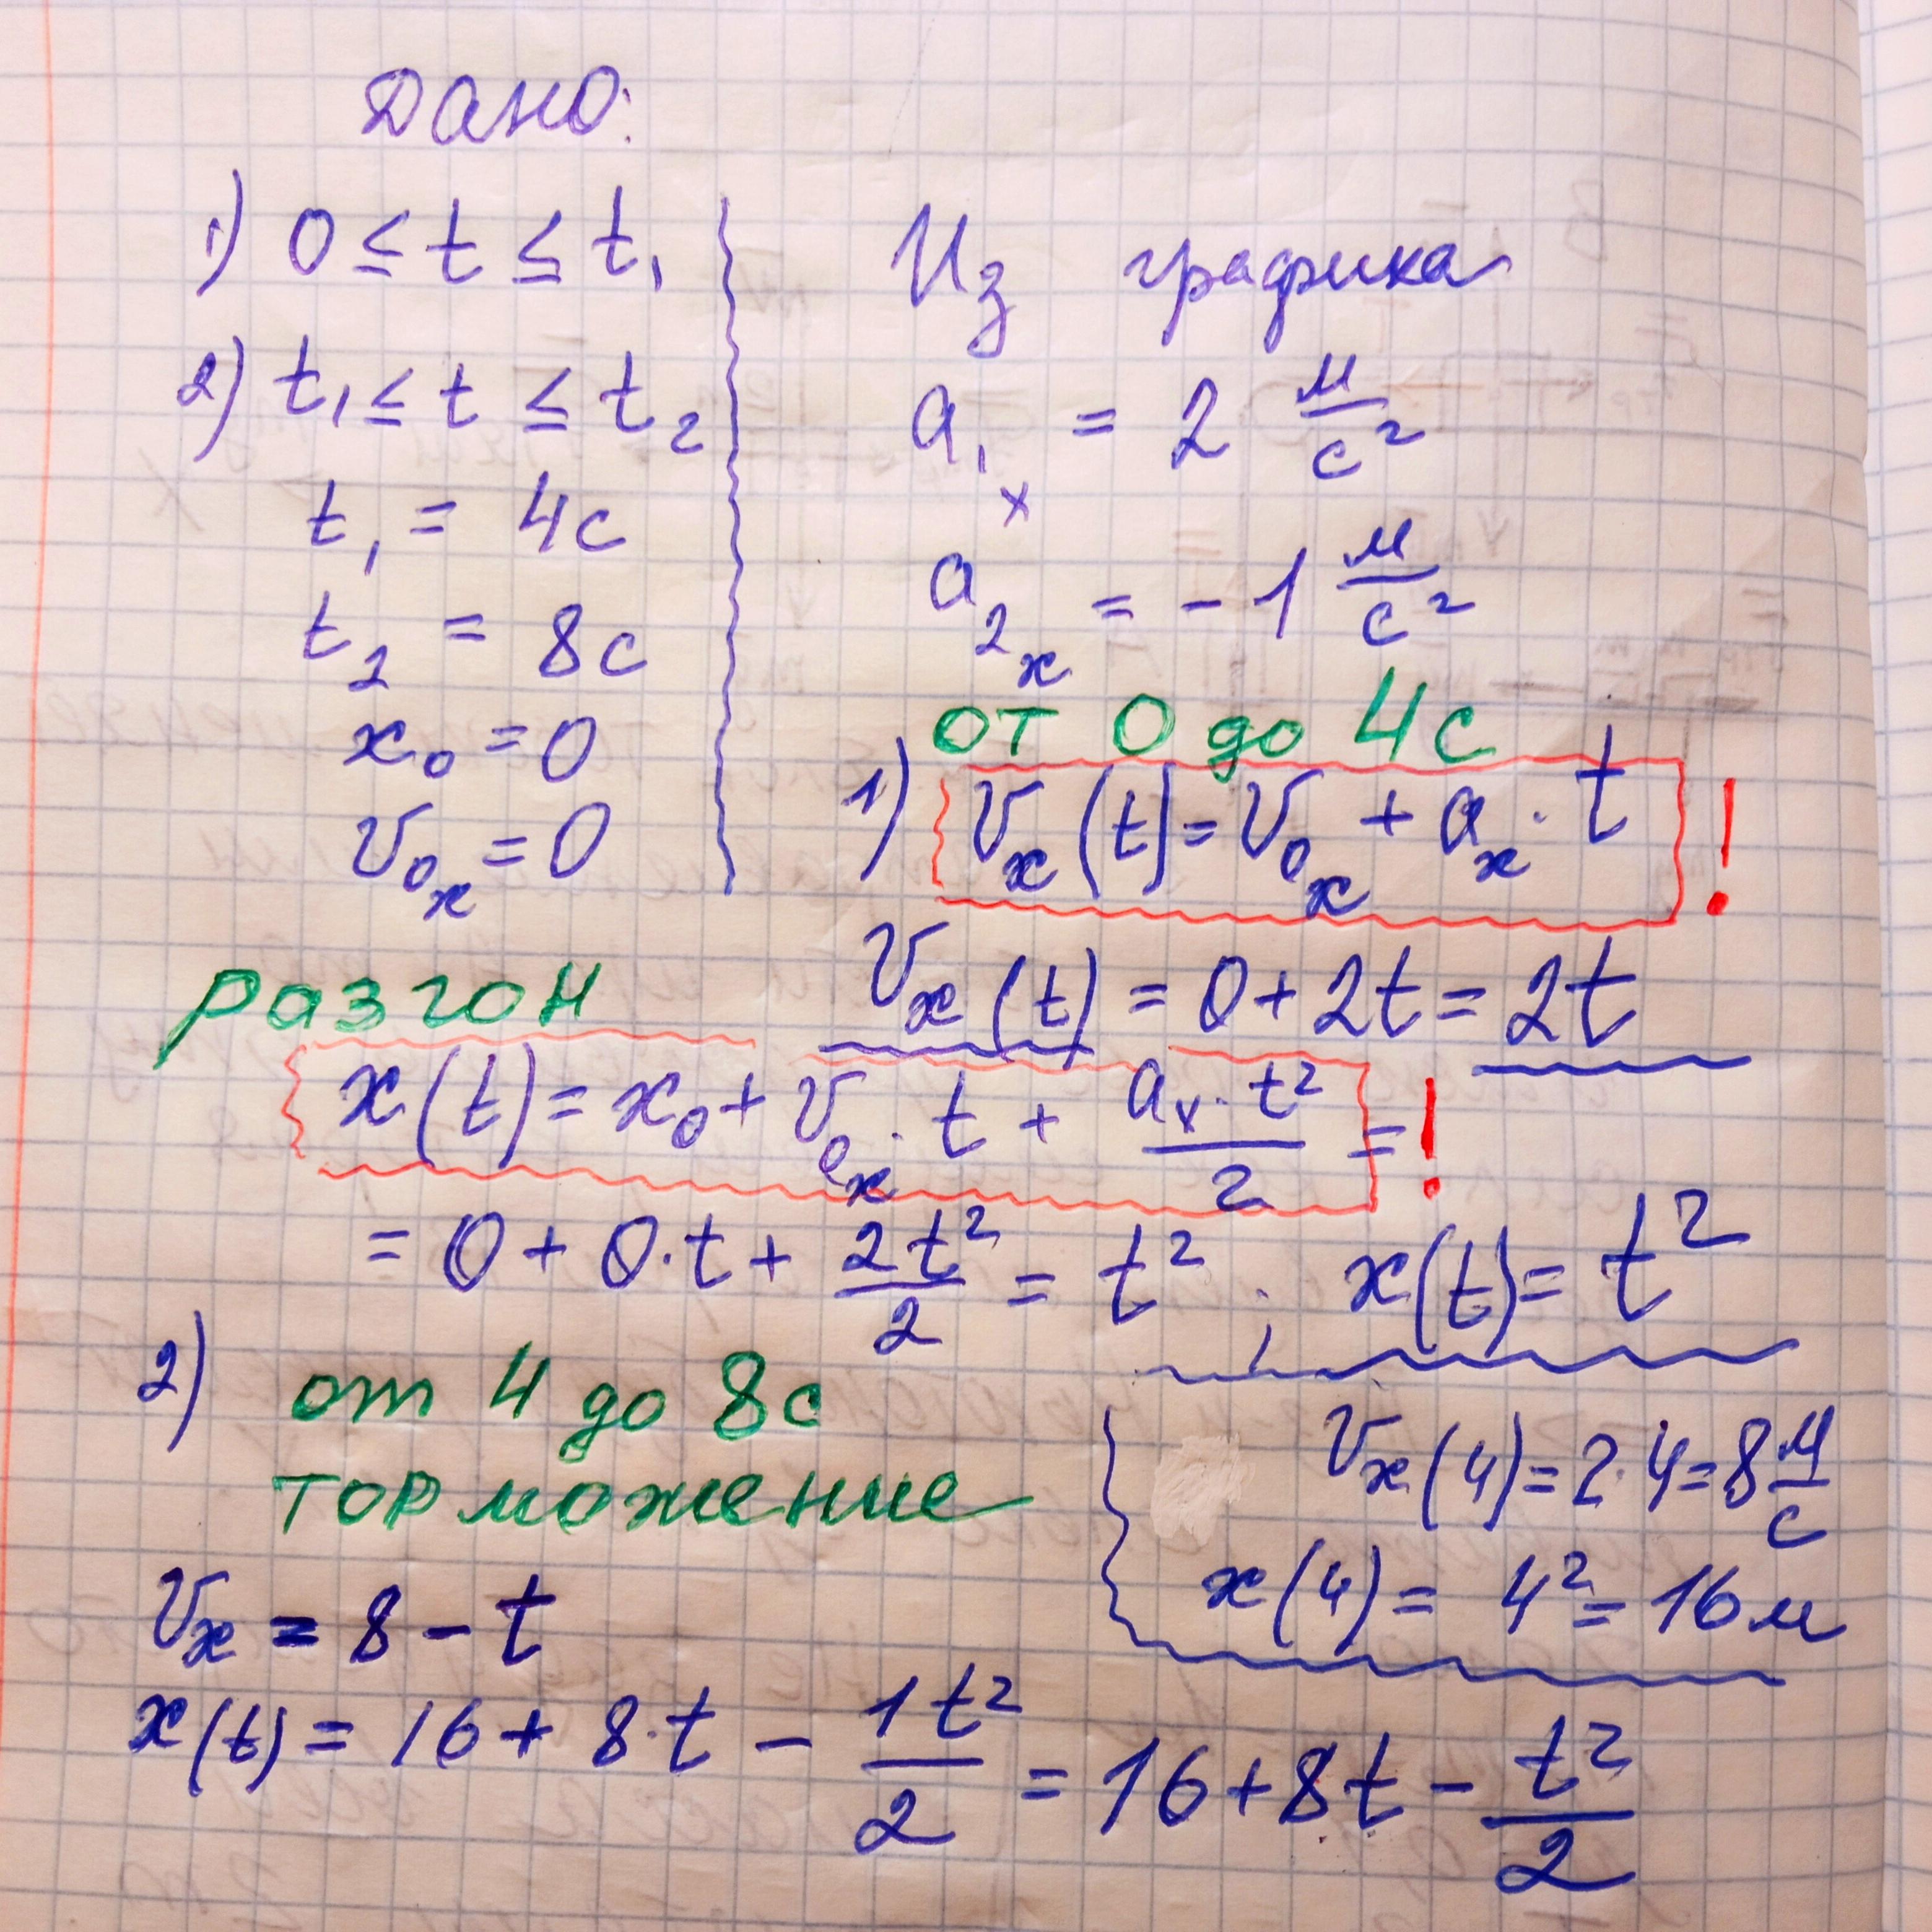 Дано:
1) 0 ≤ t ≤ t₁
2) t₁ ≤ t ≤ t₂
t₁ = 4с
t₂ = 8с
x₀ = 0
v₀ₓ = 0
Из графика
a₁ₓ = 2 м/с²
a₂ₓ = -1 м/с²
от 0 до 4с
1) vₓ(t) = v₀ₓ + aₓ · t !
vₓ(t) = 0 + 2t = 2t
разгон
x(t) = x₀ + v₀ₓ · t + aₓ · t²/2 = !
= 0 + 0 · t + 2t²/2 = t² ; x(t) = t²
2) от 4 до 8с
торможение
vₓ(4) = 2 · 4 = 8 м/с
x(4) = 4² = 16 м
vₓ = 8 - t
x(t) = 16 + 8 · t - 1t²/2 = 16 + 8t - t²/2